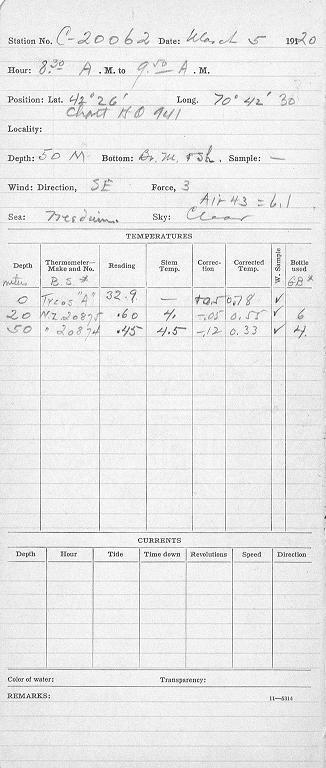 Station No. C-20062 Date: March 5 19120
Hour: 8.30 A .M. to 9.50 A .M.
Position: Lat. 42° 26' Long. 70° 42' 30
Chart H O 941
Locality:
Depth: 50 M Bottom: Br. M. & Sh. Sample: —
Wind: Direction, SE Force, 3
Air 43 = 6.1
Sea: Medium. Sky: Clear
TEMPERATURES
Depth Thermometer— Make and No. Reading Stem Temp. Correc- tion Corrected Temp. W. Sample Bottle used
meters B.S.# GB#
0 Tycos "A" 32.9 — +0.5 0.78 ✓
20 N.Z. 20875 .60 4. -.05 0.55 ✓ 6
50 " 20874 .45 4.5 -.12 0.33 ✓ 4
CURRENTS
Depth Hour Tide Time down Revolutions Speed Direction
Color of water: Transparency:
REMARKS: 11—5314